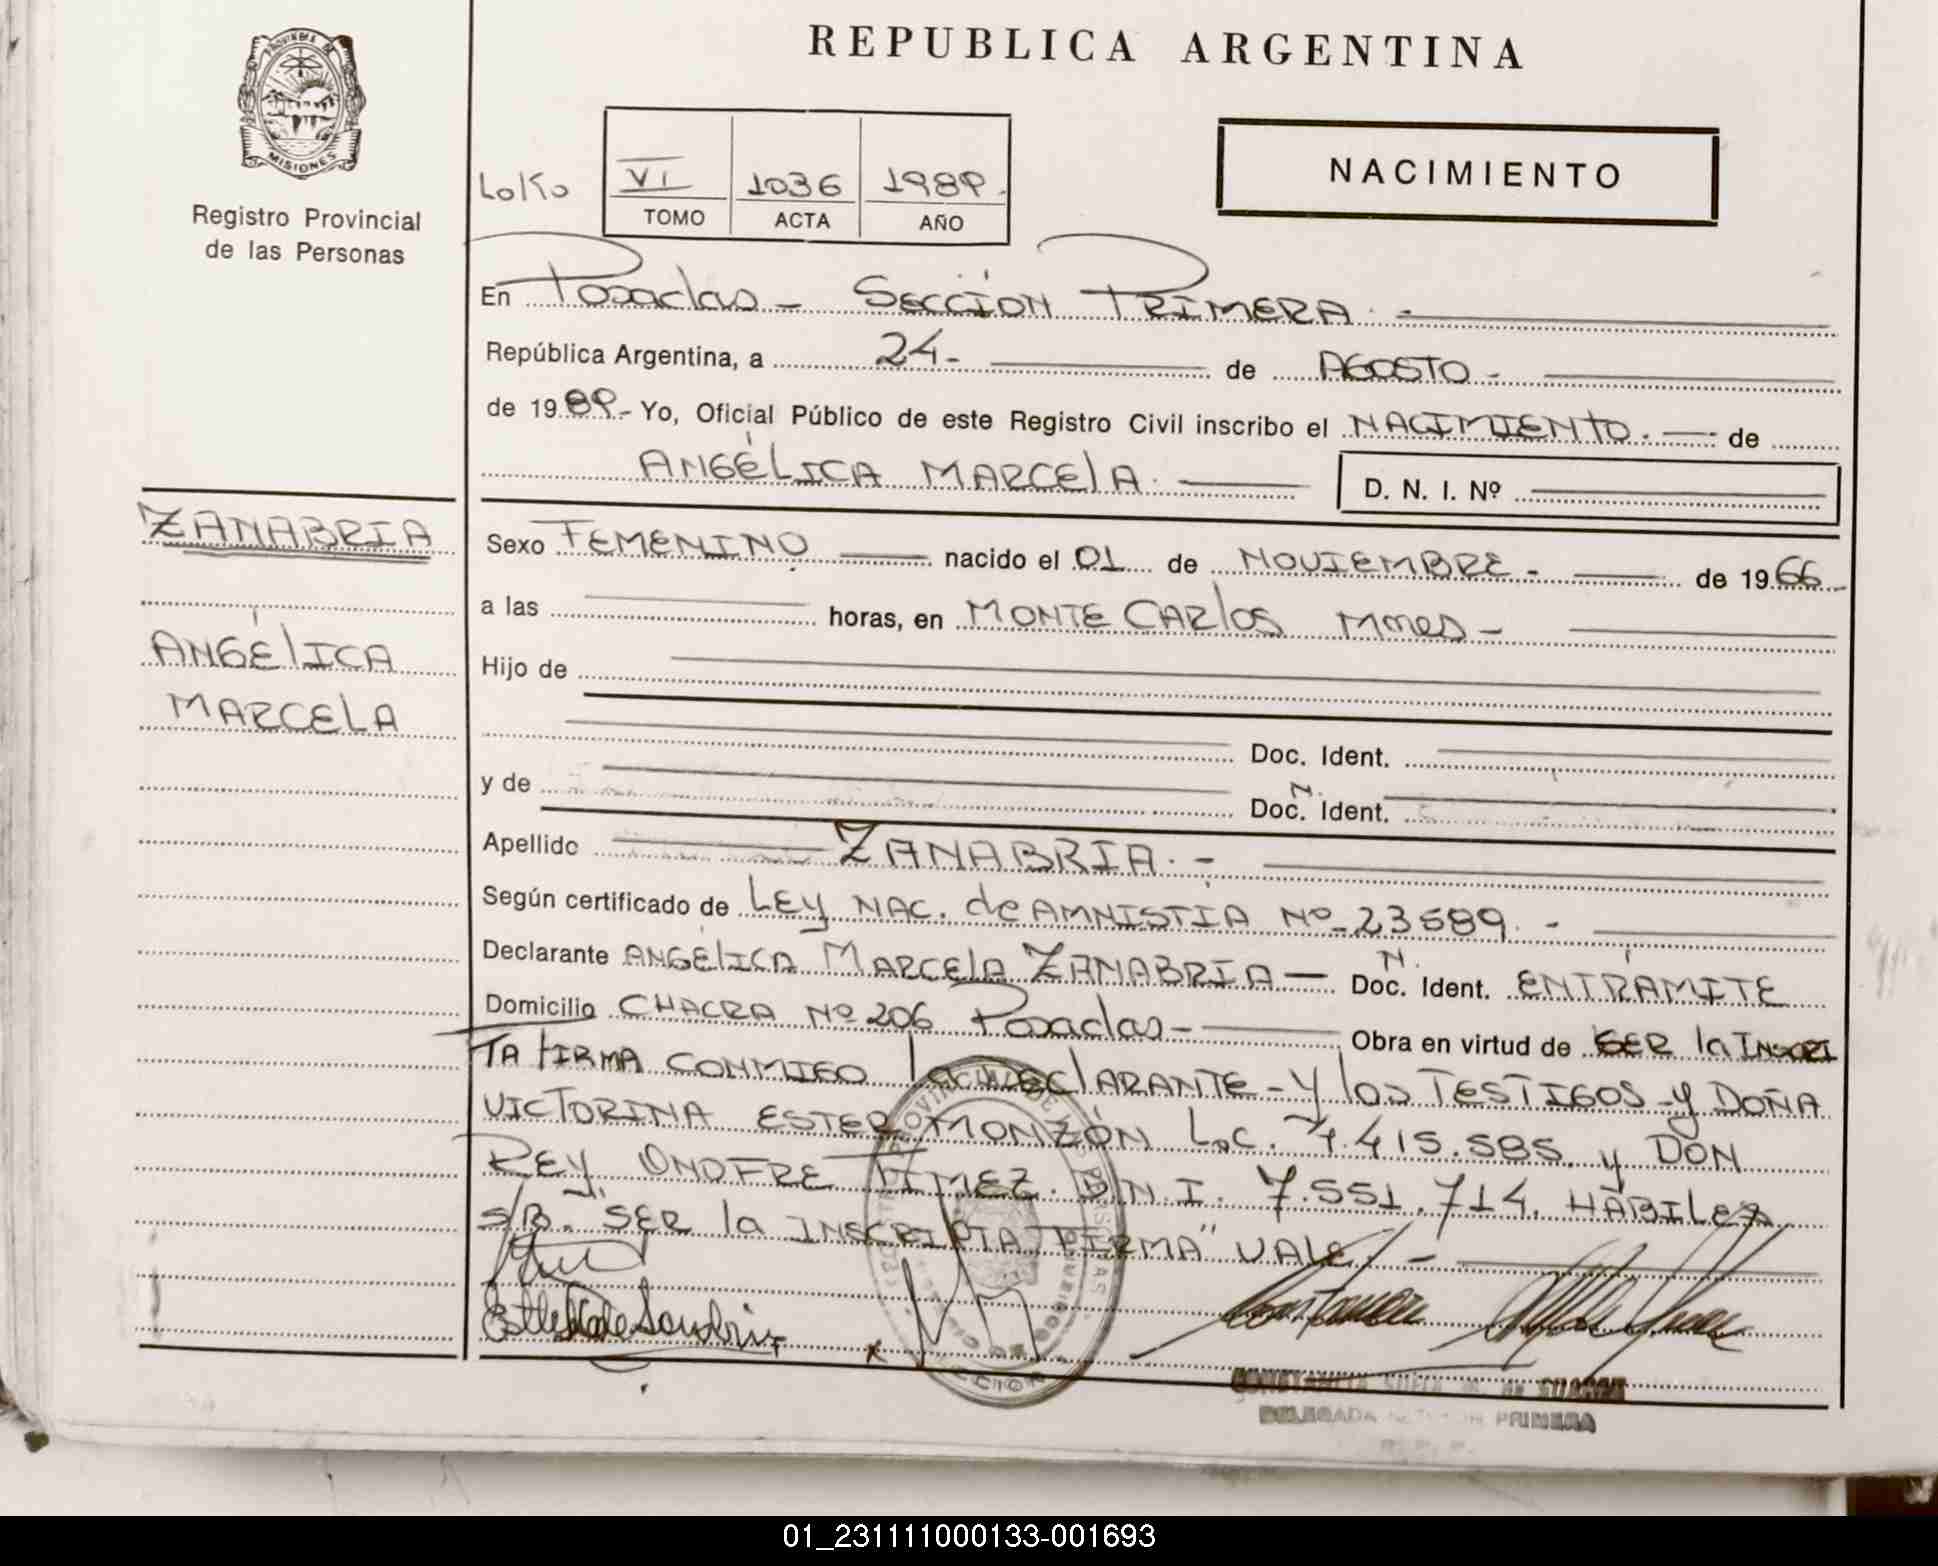 REPUBLICA ARGENTINA
PROVINCIA DE
MISIONES
Registro Provincial
de las Personas
VI 1036 1989.
TOMO ACTA AÑO
NACIMIENTO
En Posadas - SECCIÓN PRIMERA. -
República Argentina, a 24- de AGOSTO -
de 1989.- Yo, Oficial Público de este Registro Civil inscribo el NACIMIENTO. - de
ANGÉLICA MARCELA. D. N. I. Nº
ZANABRIA
ANGÉLICA
MARCELA
Sexo FEMENINO nacido el 01 de NOVIEMBRE - de 1966
a las horas, en MONTE CARLOS Mnes -
Hijo de
Doc. Ident.
y de Doc. N. Ident.
Apellido ZANABRIA. -
Según certificado de LEY NAC. de AMNISTIA Nº 23589. -
Declarante ANGÉLICA MARCELA ZANABRIA - Doc. N. Ident. EN TRÁMITE
Domicilio CHACRA Nº 206 Posadas - Obra en virtud de SER la INSCRI
TA FIRMA CONMIGO la DEClARANTE - y los TESTIGOS - y DOÑA
VICTORINA ESTER MONZÓN L.C. 4.415.585. y DON
REY ONOFRE D.N.I. 7.551.714. HÁBILES
S/B. "SER la INSCRIPTA FIRMA" VALE. -
DELEGADA PRIMERA
01_231111000133-001693